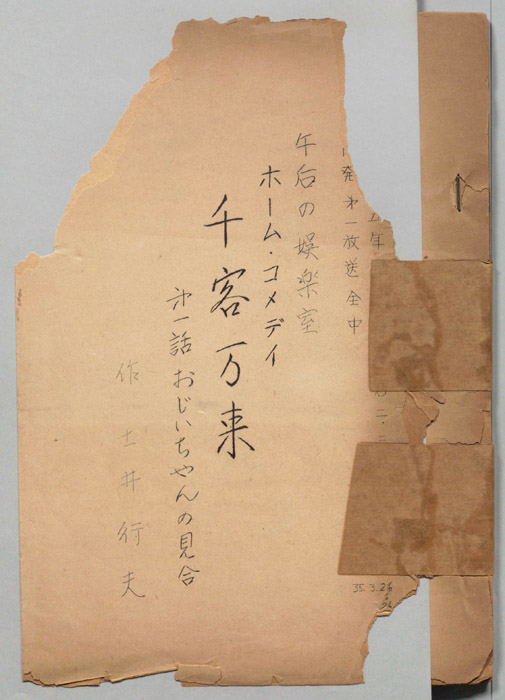 発 第一放送 全中
午后の娯楽室
ホーム・コメデイ
千客万来
第一話 おじいちゃんの見合
作 土井行夫
35.3.26